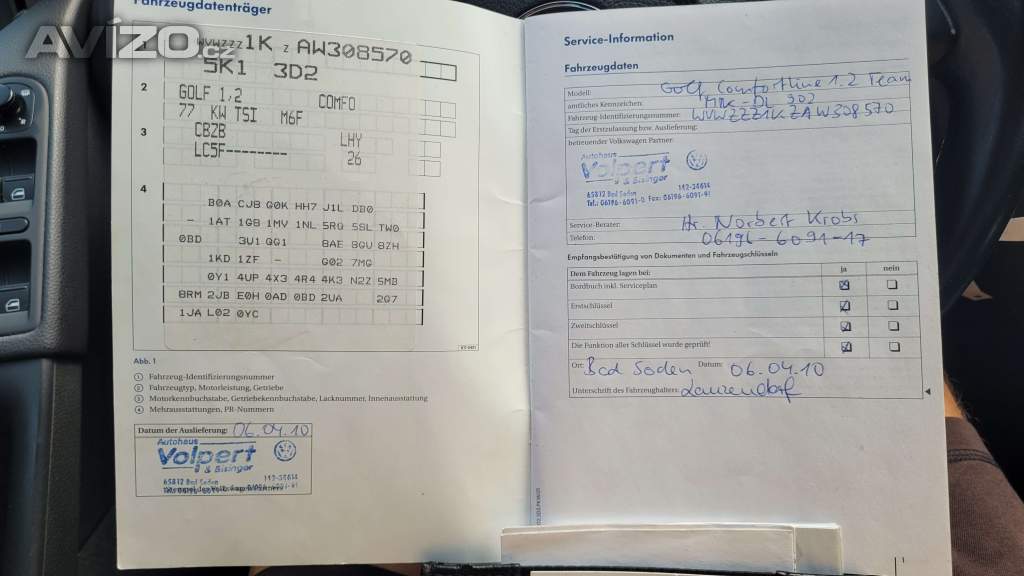 AVÍZO.cz
Fahrzeugdatenträger
1
WVWZZZ1K Z AW308570
5K1 3D2
2
GOLF 1.2 COMFO
77 KW TSI M6F
3
CBZB LHY
LC5F-------- 26
4
B0A CJ8 G0K HH7 J1L DB0
- 1AT 1G8 1MV 1NL 5RQ 5SL TW0
0BD 3U1 QQ1 8AE 8GU 8ZH
1KD 1ZF - G02 7MG
0Y1 4UP 4X3 4R4 4K3 N2Z 5MB
8RM 2JB E0H 0AD 0BD 2UA 2G7
1JA L02 0YC
Abb. 1
① Fahrzeug-Identifizierungsnummer
② Fahrzeugtyp, Motorleistung, Getriebe
③ Motorkennbuchstabe, Getriebekennbuchstabe, Lacknummer, Innenausstattung
④ Mehrausstattungen, PR-Nummern
Datum der Auslieferung: 06.04.10
Autohaus
Volpert
& Bisinger
65812 Bad Soden
Service-Information
Fahrzeugdaten
Modell: Golf Comfortline 1.2 Team
amtliches Kennzeichen: MTK-DL 302
Fahrzeug-Identifizierungsnummer: WVWZZZ1KZAW308570
Tag der Erstzulassung bzw. Auslieferung:
betreuender Volkswagen Partner:
Autohaus
Volpert
& Bisinger
65812 Bad Soden
Tel.: 06196-6091-0 Fax: 06196-6091-41
Service-Berater: Hr. Norbert Krobs
Telefon: 06196-6091-17
Empfangsbestätigung von Dokumenten und Fahrzeugschlüsseln
Dem Fahrzeug lagen bei: ja nein
Bordbuch inkl. Serviceplan
Erstschlüssel
Zweitschlüssel
Die Funktion aller Schlüssel wurde geprüft!
Ort: Bad Soden Datum: 06.04.10
Unterschrift des Fahrzeughalters: